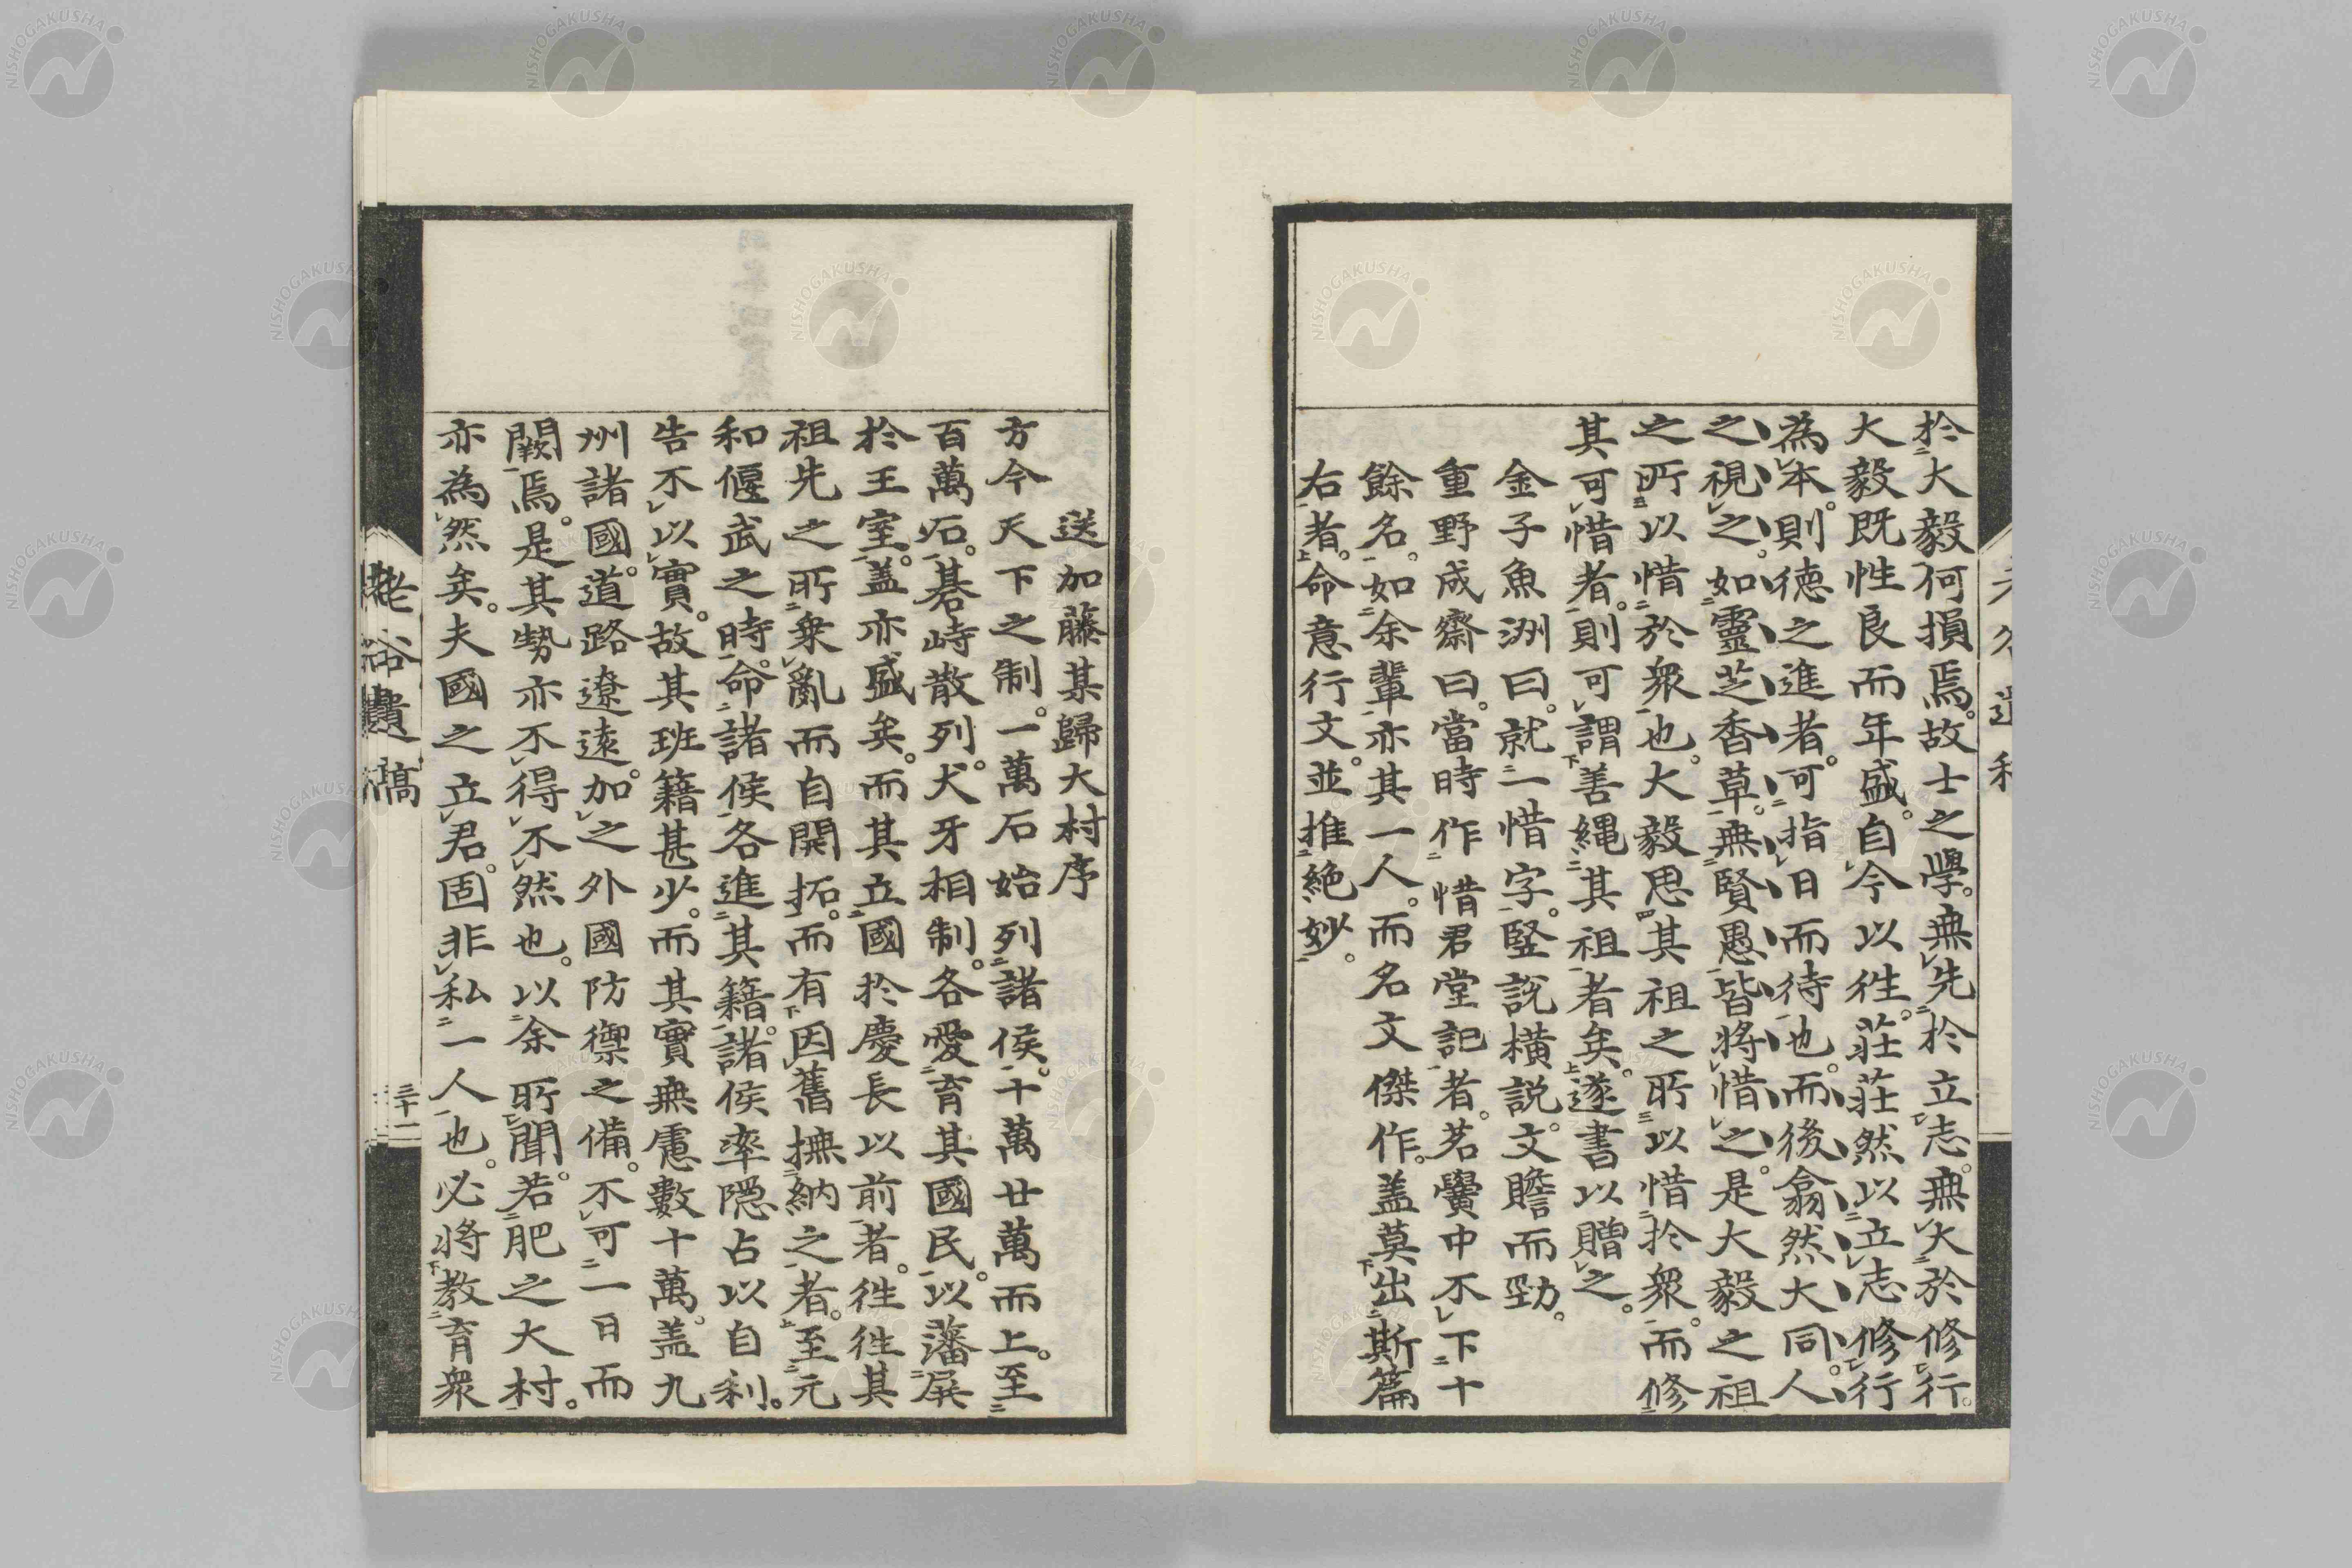 於大毅何損焉。故士之學。無先於立志。無大於修行。
大毅既性良而年盛。自今以往。莊莊然以立志修行
為本。則德之進者。可指日而待也。而後翕然大同。人
之視之。如靈芝香草。無賢愚皆將惜之。是大毅之祖
之所以惜於衆也。大毅思其祖之所以惜於衆。而修
其可惜者。則可謂善繩其祖者矣。遂書以贈之。
金子魚洲曰。就一惜字。竪說橫說。文贍而勁。
重野成齋曰。當時作惜君堂記者。茗黌中不下十
餘名。如余輩亦其一人。而名文傑作。蓋莫出斯篇
右者。命意行文。並推絕妙。
送加藤某歸大村序
方今天下之制。一萬石始列諸侯。十萬廿萬而上。至
百萬石。碁峙散列。犬牙相制。各愛育其國民。以藩屏
於王室。蓋亦盛矣。而其立國於慶長以前者。往往其
祖先之所衆亂而自開拓。而有因舊撫納之者。至元
和偃武之時。命諸侯各進其籍。諸侯率隱占以自利。
告不以實。故其班籍甚少。而其實無慮數十萬。蓋九
州諸國。道路遼遠。加之外國防禦之備。不可一日而
闕焉。是其勢亦不得不然也。以余所聞。若肥之大村。
亦為然矣。夫國之立君。固非私一人也。必將教育衆
老谷遺稿
三十一
NISHOGAKUSHA